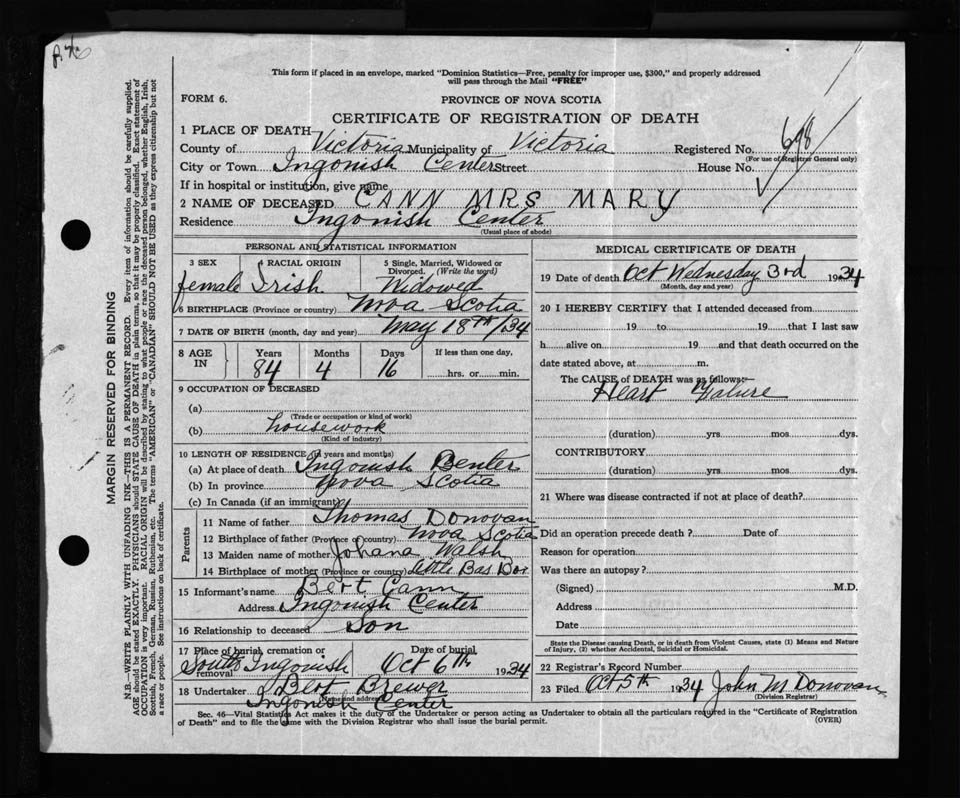 This form if placed in an envelope, marked "Dominion Statistics—Free, penalty for improper use, $300," and properly addressed
will pass through the Mail "FREE"
FORM 6.
PROVINCE OF NOVA SCOTIA
CERTIFICATE OF REGISTRATION OF DEATH
1 PLACE OF DEATH
County of Victoria Municipality of Victoria Registered No. 698
(For use of Registrar General only)
City or Town Ingonish Center Street House No.
If in hospital or institution, give name
2 NAME OF DECEASED CANN MRS MARY
Residence Ingonish Center
(Usual place of abode)
PERSONAL AND STATISTICAL INFORMATION
3 SEX 4 RACIAL ORIGIN 5 Single, Married, Widowed or
Divorced. (Write the word)
female Irish Widowed
6 BIRTHPLACE (Province or country) Nova Scotia
7 DATE OF BIRTH (month, day and year) May 18th/34
8 AGE IN Years Months Days If less than one day,
84 4 16 hrs. or min.
9 OCCUPATION OF DECEASED
(a)
(Trade or occupation or kind of work)
(b) housework
(Kind of industry)
10 LENGTH OF RESIDENCE (in years and months)
(a) At place of death Ingonish Center
(b) In province Nova Scotia
(c) In Canada (if an immigrant)
Parents
11 Name of father Thomas Donovan
12 Birthplace of father (Province or country) Nova Scotia
13 Maiden name of mother Johana Walsh
14 Birthplace of mother (Province or country) Little Bas. Dor
15 Informant's name Bert Cann
Address Ingonish Center
16 Relationship to deceased Son
17 Place of burial, cremation or removal Date of burial
South Ingonish Oct 6th 1934
18 Undertaker Bert Brewer
Ingonish Center
MEDICAL CERTIFICATE OF DEATH
19 Date of death Oct Wednesday 3rd 1934
(Month, day and year)
20 I HEREBY CERTIFY that I attended deceased from
19 to 19 that I last saw
h alive on 19 and that death occurred on the
date stated above, at m.
The CAUSE of DEATH was as follows:—
Heart Falure
(duration) yrs. mos. dys.
CONTRIBUTORY
(duration) yrs. mos. dys.
21 Where was disease contracted if not at place of death?
Did an operation precede death? Date of
Reason for operation
Was there an autopsy?
(Signed) M.D.
Address
Date
State the Disease causing Death, or in death from Violent Causes, state (1) Means and Nature
of Injury, (2) whether Accidental, Suicidal or Homicidal.
22 Registrar's Record Number
23 Filed Oct 5th 1934 John M Donovan
(Division Registrar)
Sec. 46—Vital Statistics Act makes it the duty of the Undertaker or person acting as Undertaker to obtain all the particulars required in the "Certificate of Registration
of Death" and to file the same with the Division Registrar who shall issue the burial permit.
(OVER)
MARGIN RESERVED FOR BINDING
N.B.—WRITE PLAINLY WITH UNFADING INK—THIS IS A PERMANENT RECORD. Every item of information should be carefully supplied.
AGE should be stated EXACTLY. PHYSICIANS should STATE CAUSE OF DEATH in plain terms, so that it may be properly classified. Exact statement of
OCCUPATION is very important. RACIAL ORIGIN will be described by stating to what people or race the deceased person belonged, whether English, Irish,
Scottish, French, German, Russian, Ruthenian, etc. The terms "AMERICAN" or "CANADIAN" SHOULD NOT BE USED as they express citizenship but not
a race or people. See instructions on back of certificate.